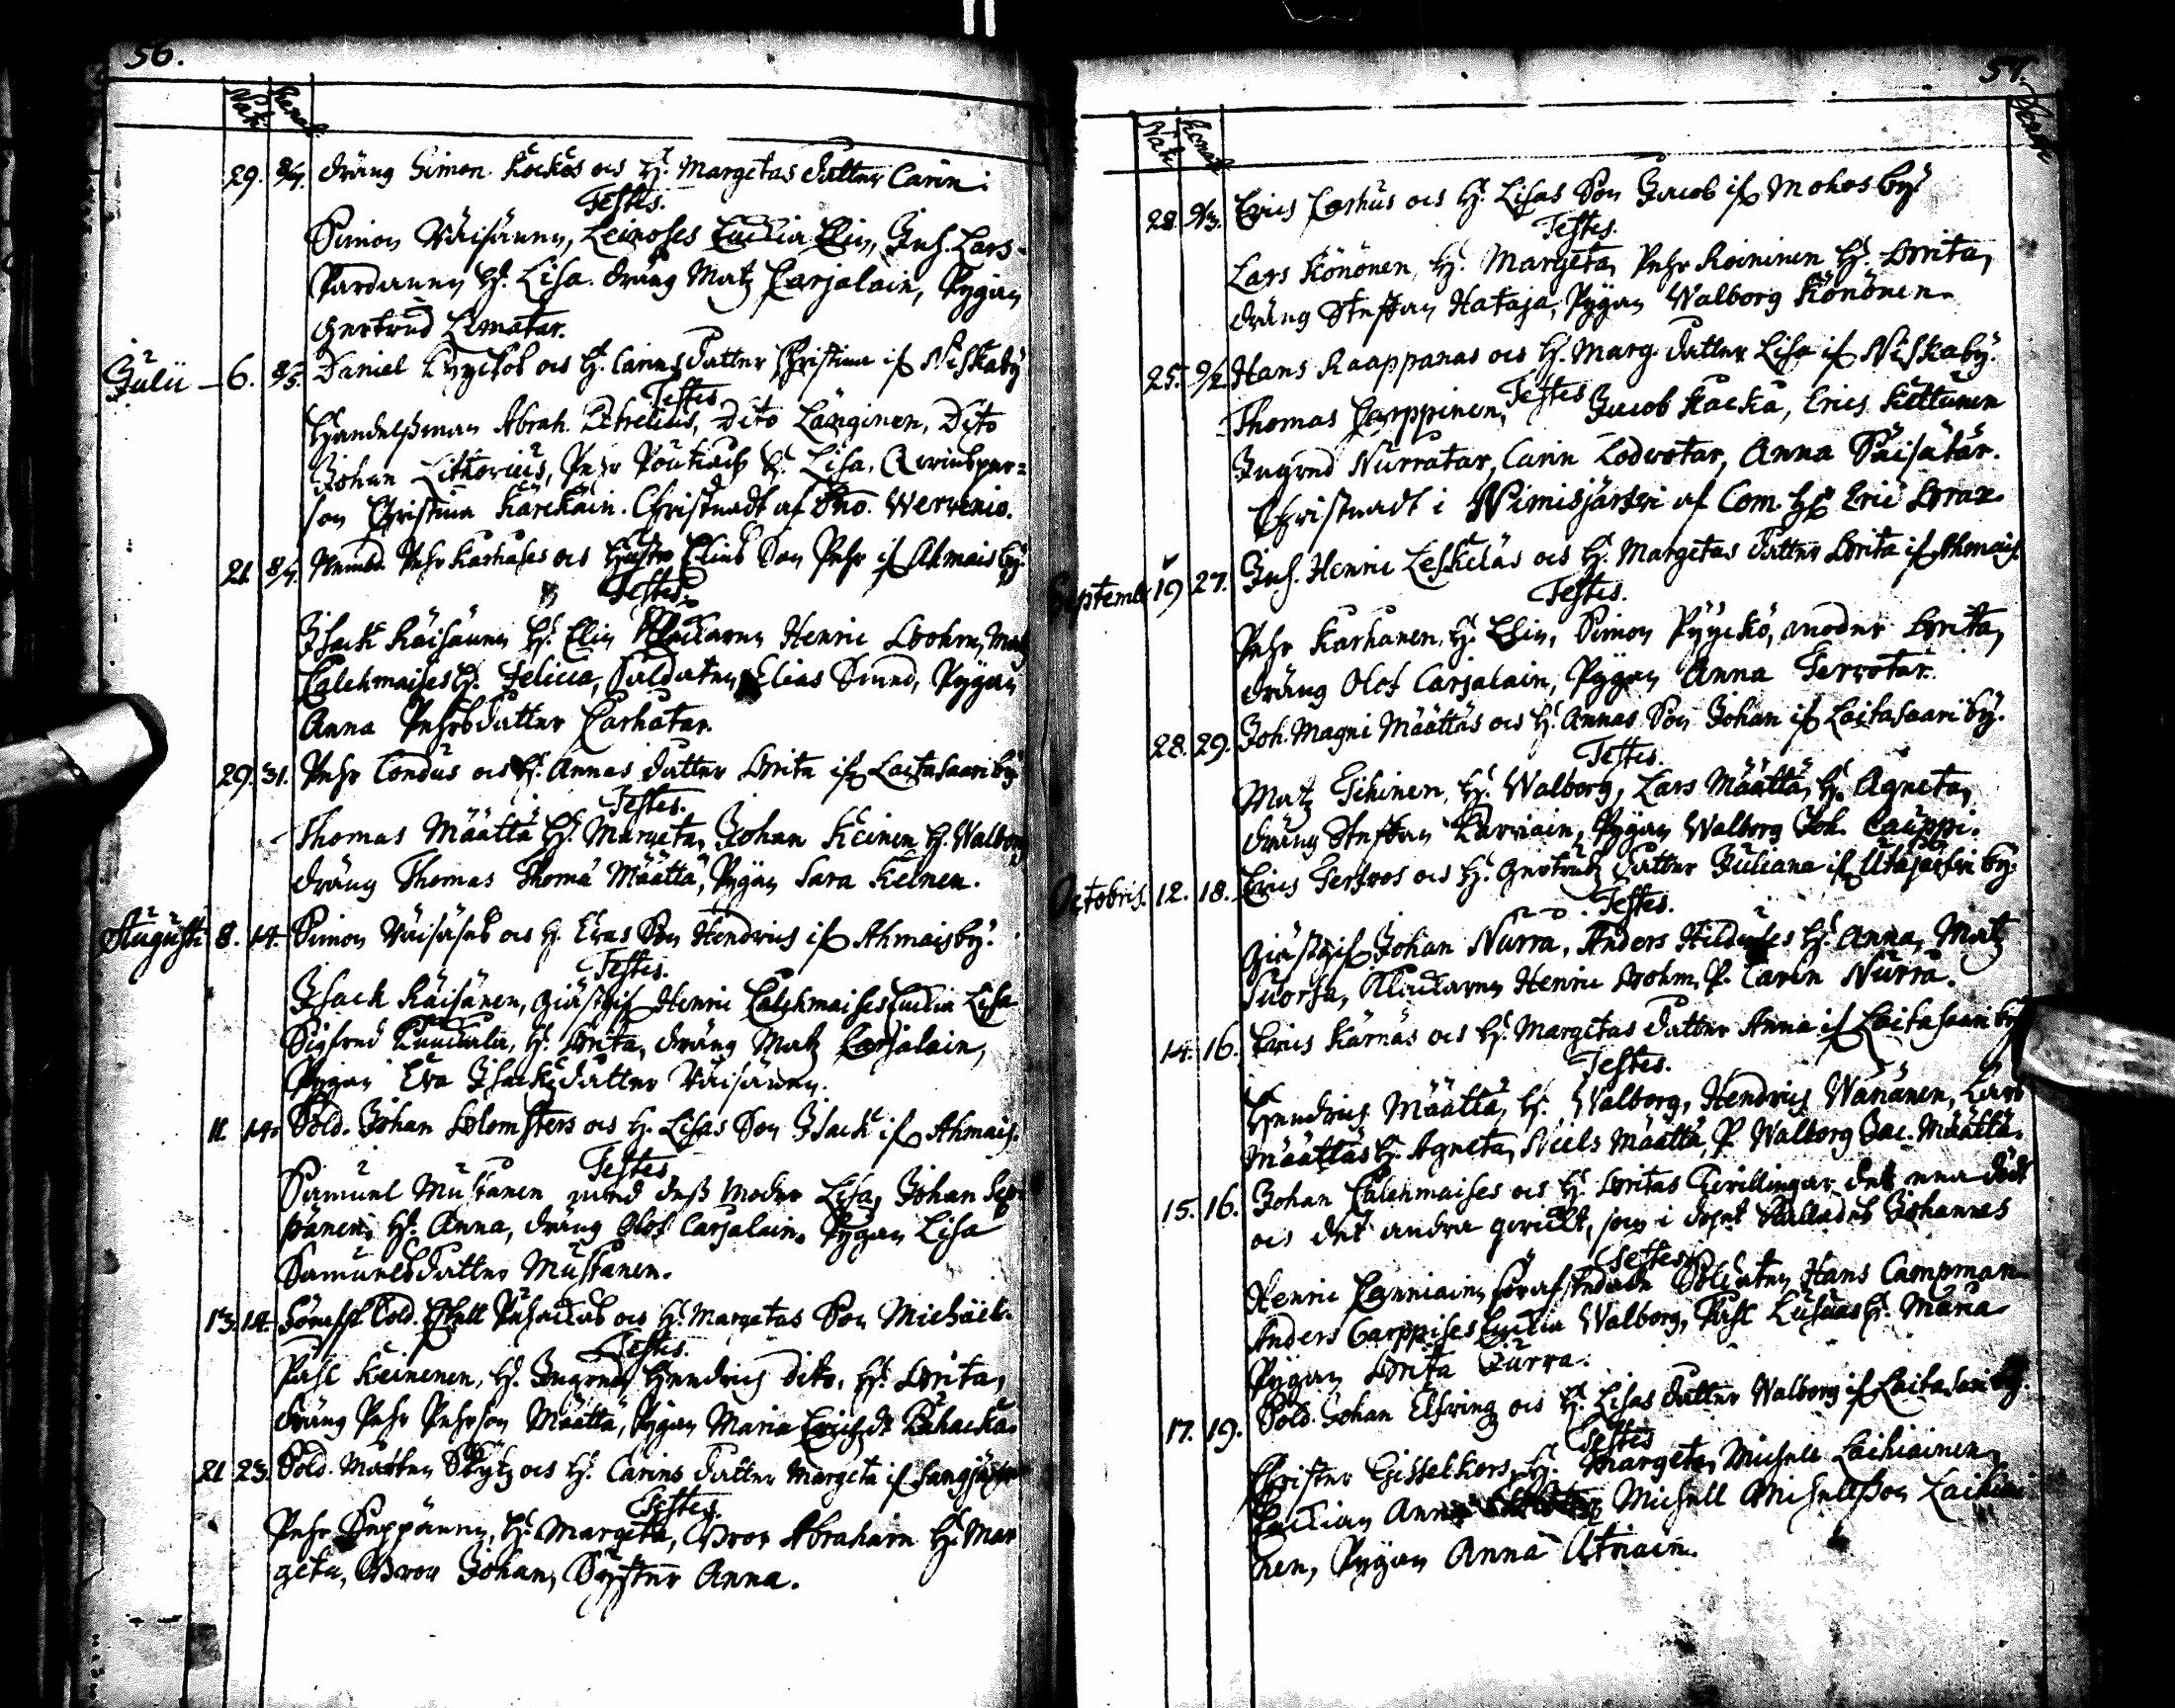 56.
Nati Renati
29. 8/7. dräng Simon Kockos och H. Margetas dotter Carin.
Testes.
Simon Väisänen, Leinoses Enckia Elin, Inh. Lars
Pardanen H. Lisa. dräng Matz Carjalain, Pygan
Gertrud Lematar.
Julii 6. 8/5. Daniel Kyyckös och H. Carins dotter Christina if Niskaby
Testes
Handelßman Abrah. Petrelius, Dito Länginen, Dito
Johan Lithovius, Pehr Poutiach H. Lisa, Qwinßper=
son Christina Karckäin. Christnadt af Dno. Wervenio.
21 8/7. Nembd. Pehr Karhuses och Hustro Elins Son Pehr if Ahmas by.
Testes
Isack Räisänen H. Elin Klåckaren Henric Brohm, Matz
Calckmaises H. Felicia, Soldaten Elias Sund, Pygan
Anna Pehrsdotter Carhutar.
29. 31. Pehr Tondus och H. Annas dotter Brita if Laitasaari by
Testes.
Thomas Määttä H. Margeta, Johan Keinen H. Walborg
dräng Thomas Thomæ Määttä, Pygan Sara Keinen.
Augusti 8. 14. Simon Väisäses och H. Evas Son Hendrich if Ahmas by.
Testes.
Isack Räisänen, Giästgif Henric Calckmaises Enckia Lisa
Sigfred Kuuckala, H. Brita, dräng Matz Carjalain,
Pygan Eva Isacks dotter Väisänen.
11. 14. Sold. Johan Blomsters och H. Lisas Son Isack if Ahmas.
Testes
Samuel Mustanen med deß Moder Lisa, Johan Sep=
pänen, H. Anna, dräng Olof Carjalain. Pygan Lisa
Samuelsdotter Mustanen.
13. 14. Sold. och H. Margetas Son Michäel.
Testes.
Påhl Keinenen, H. Ingred Hendrich dito, H. Brita,
dräng Pehr Pehrson Määttä, Pygan Maria Erichs dr
21 23. Sold. Matten Skytz och H. Carins dotter Margeta if Sangijärfvi
Testes.
Pehr Seppänen, H. Margeta, Bror Abraham H. Mar
geta, Bror Johan, Syster Anna.
57.
Nati Renati
28. 9/3. Erics Carhus och H. Lisas Son Jacob if Mohos by
Testes.
Lars Könönen, H. Margeta, Pehr Koininen H. Brita,
dräng Steffan Hataja, Pygan Walborg Könönen.
25. 9/2 Hans Kaappanas och H. Marg. dotter Lisa if Niskaby.
Testes
Thomas Carppinen, Jacob Kacka, Erics Kettunen
Ingred Nurratar, Carin Lodvotar, Anna Päisätär.
Christnadt i Nimisjärfvi af Com. Hr Eric Brax.
Septemb. 19 27. Inh. Henric Leskeläs och H. Margetas dotter Brita if Ahmas.
Testes.
Pehr Karhunen, H. Elin, Simon Pyyckö, moder Brita,
dräng Olof Carjalain, Pygan Anna Tervotar.
28. 29. Joh. Magni Määttäs och H. Annas Son Johan if Laitasaari by.
Testes.
Matz Tihinen, H. Walborg, Lars Määttä, H. Agneta,
dräng Steffan Karviain, Pygan Walborg Joh. Cauppi.
Octobris. 12. 18. Erics Terfvos och H. Gertrudz dotter Juliana if Utajärfvi by.
Testes.
Giästgif Johan Nurra, Anders Hilduses H. Anna, Matz
Suorsa, Klåckaren Henric Brohm, P. Carin Nurra.
14. 16. Carins Kärnäs och H. Margetas dotter Anna if Laitasaari by
Testes.
Hendrich Määttä, H. Walborg, Hendrich Wänänen, Lars
Määttäs H. Agneta, Niels Määttä, P. Walborg Jac. Määttä.
15. 16. Johan Calckmaises och H. Britas Tvillingar det ena dödt
och det andra qvickt, som i dopet kallades Johannes
Testes
Henric Canniain, Soldaten Hans Campman
Anders Carppises Enckia Walborg, Påhl Lusuas H. Maria
Pygan Brita Jurra.
17. 19. Sold. Johan Elfving och H. Lisas dotter Walborg if Laitasaari by.
Testes
Christer Gisselkors, H. Margeta, Michell Laihiainen,
Enckian Anna Michell Michellßon Laihiai
nen, Pygan Anna Atriain.